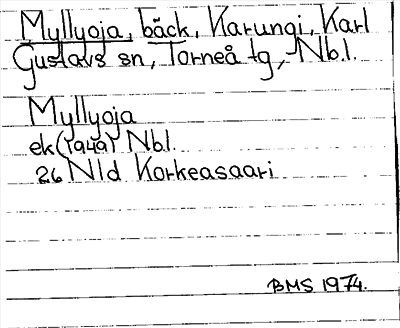 Myllyoja, bäck, Karungi, Karl
Gustavs sn, Torneå tg, Nbl.
Myllyoja
ek (1949) Nbl.
26 Nld Korkeasaari
BMS 1974.